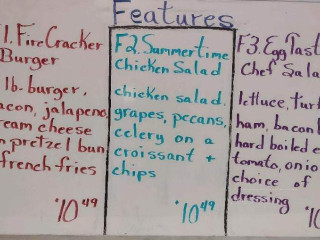 Features
1. Fire Cracker
Burger
lb. burger,
acon, jalapeno,
ream cheese
n pretzel bun
french-fries
$10.49
F2. Summertime
Chicken Salad
chicken salad,
grapes, pecans,
celery on a
croissant +
chips
$10.49
F3. Egg Tast
Chef Sala
lettuce, tur
ham, bacon
hard boiled e
tomato, onio
choice of
dressing
$10